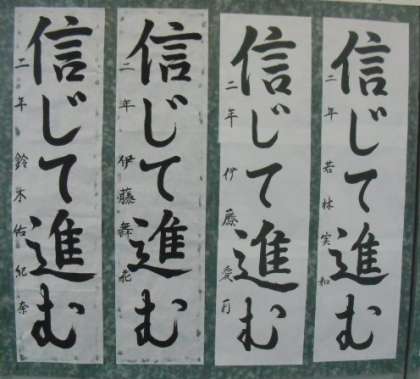 信じて進む
二年 若林実和
信じて進む
二年 伊藤愛乃
信じて進む
二年 伊藤舞花
信じて進む
二年 鈴木佑紀奈